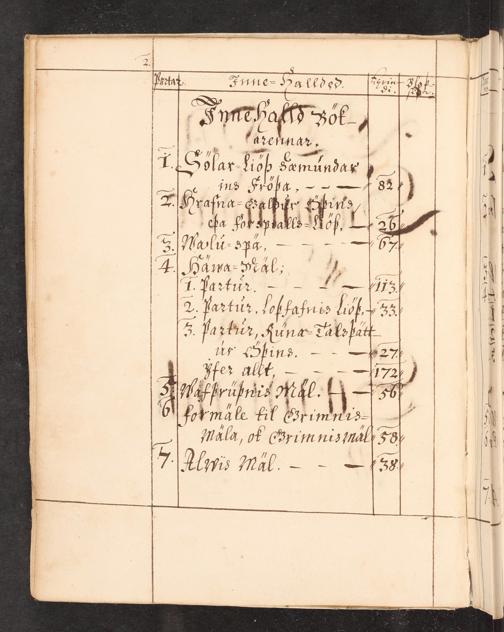 2.
Partar. Inne=Halldeð.
InneHalld Bök-
arennar.
1. Sölar Liöþ Sæmúndar
ins Fröþa. — — — 82
2. Hrafna=Galldúr Oþins
eþa forspialls=Liöþ. — 26
3. Walú=spä. — — — — 67
4. Häwa=Mäl;
1. Partúr. — — — — 113
2. Partúr. Loþfafnis Liöþ.— 33
3. Partúr, Rúna=Talsþätt
úr Oþins. — — — 27
yfer allt. — — — 172
5 Wafþrúþnis Mäl. — — 56
6 formäle til Grimnis=
Mäla, ok Grimnismäl 58
7. Alwis Mäl. — — — 38